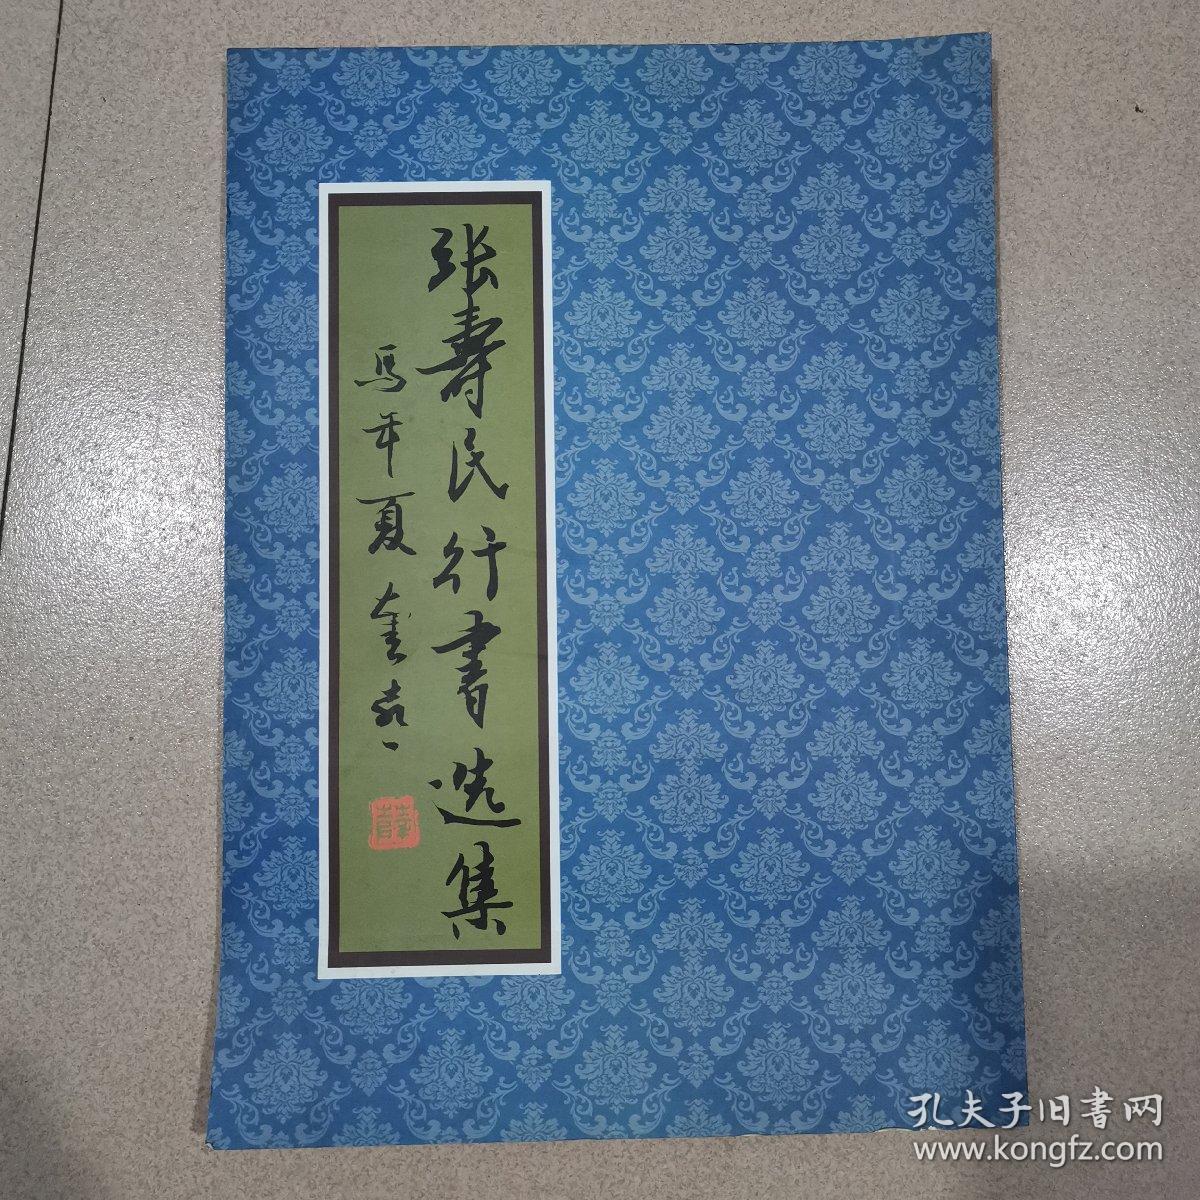 张寿民行书选集
馬年夏
孔夫子旧書网
www.kongfz.com